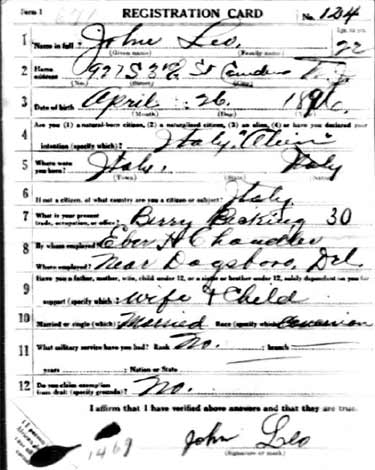 Form 1 REGISTRATION CARD No. 124
1 Name in full John Leo Age, in yrs. 22
(Given name) (Family name)
2 Home address 927 S 3rd St Camden N.J.
(No.) (Street) (City) (State)
3 Date of birth April 26 1896
(Month) (Day) (Year)
4 Are you (1) a natural-born citizen, (2) a naturalized citizen, (3) an alien, (4) or have you declared your
intention (specify which)? Italy "Alien"
5 Where were you born? Italy Italy
(Town) (State) (Nation)
6 If not a citizen, of what country are you a citizen or subject? Italy
7 What is your present trade, occupation, or office? Berry Picking 30
8 By whom employed? Eber H Chandler
Where employed? Near Dagsboro, Del.
9 Have you a father, mother, wife, child under 12, or a sister or brother under 12, solely dependent on you for
support (specify which)? Wife & Child
10 Married or single (which)? Married Race (specify which)? Caucasian
11 What military service have you had? Rank No. ; branch
years ; Nation or State
12 Do you claim exemption from draft (specify grounds)? No.
I affirm that I have verified above answers and that they are true.
1469 John Leo
(Signature or mark)